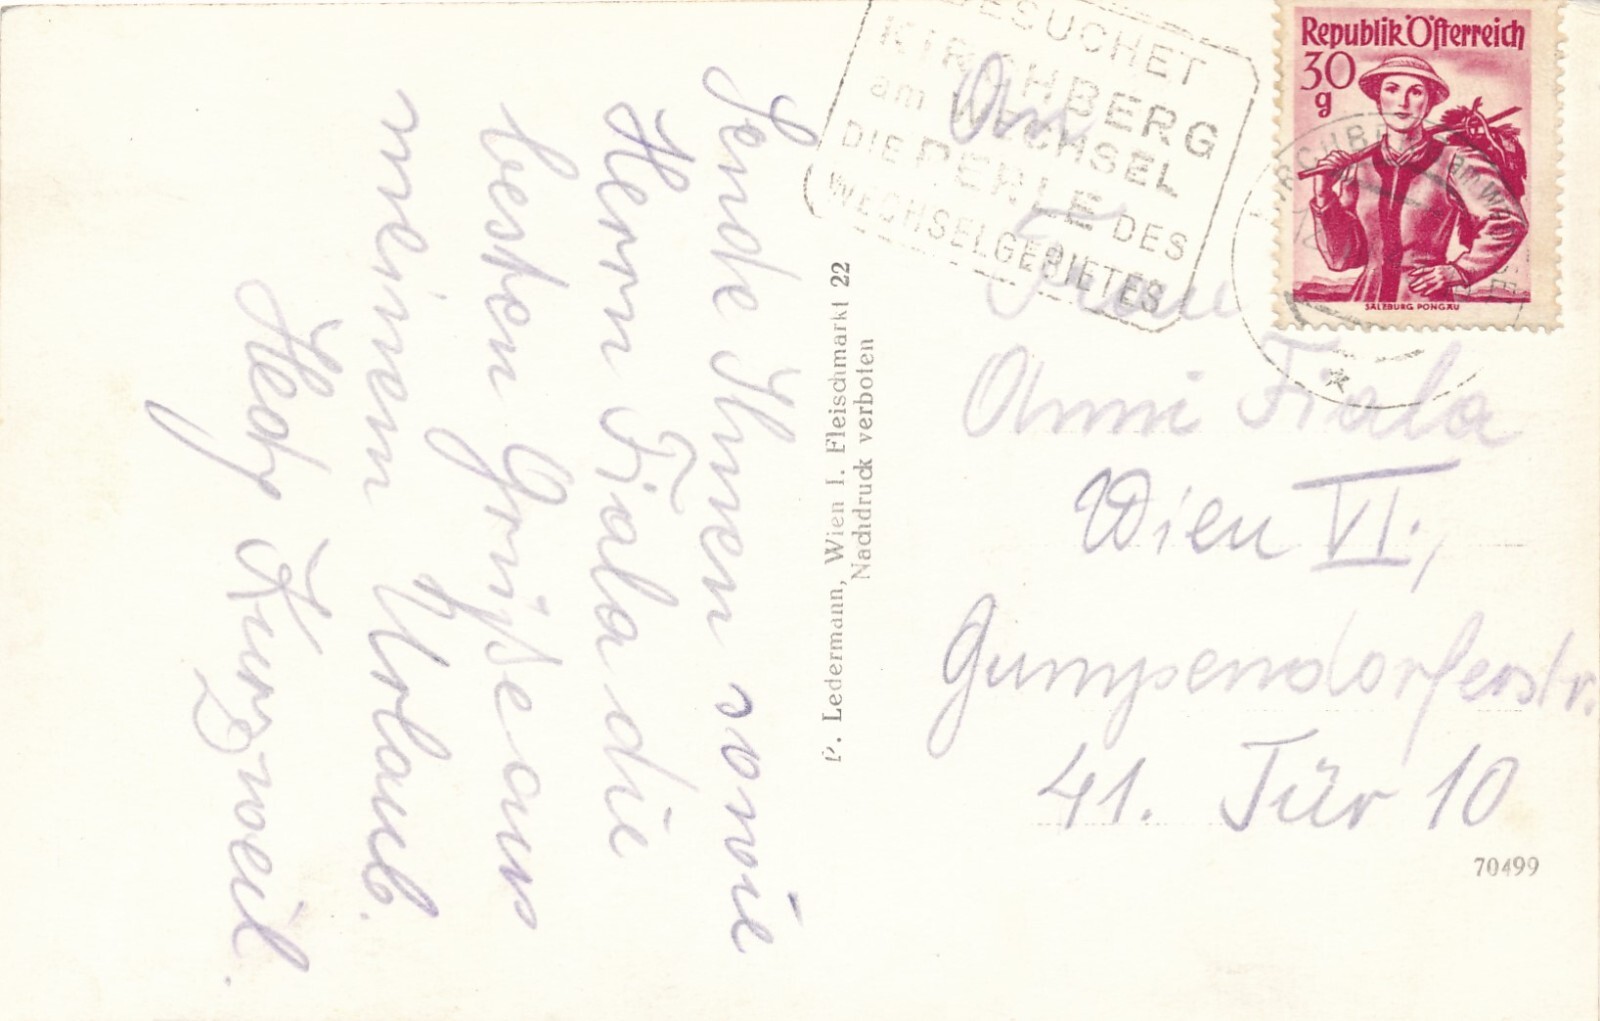 Sende Ihnen sowie
Herrn Fiala die
besten Grüße aus
meinem Urlaub.
Hedy Kurzweil.
P. Ledermann, Wien I. Fleischmarkt 22
Nachdruck verboten
BESUCHET
KIRCHBERG
am WECHSEL
DIE PERLE DES
WECHSELGEBIETES
Republik Österreich
30
g
SALZBURG PONGAU
KIRCHBERG am WECHSEL
An
Frau
Anni Fiala
Wien VI.,
Gumpendorferstr.
41. Tür 10
70499